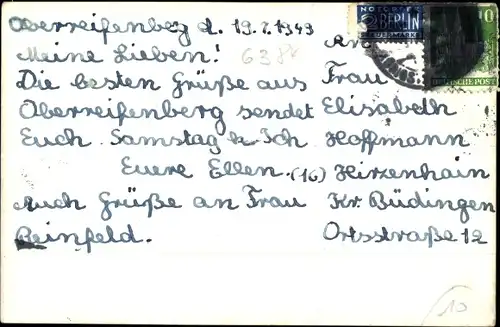 Oberreifenbeg d. 19.7.1949
Meine Lieben!
6384
Die besten Grüße aus
Oberreifenberg sendet
Euch Samstag u. Ich
Eure Ellen.
Auch Grüße an Frau
Beinfeld.
NOTOPFER
2 BERLIN
STEUERMARKE
10
DEUTSCHE POST
An
Frau
Elisabeth
Hoffmann
(16) Hirzenhain
Kr. Büdingen
Ortsstraße 12
10